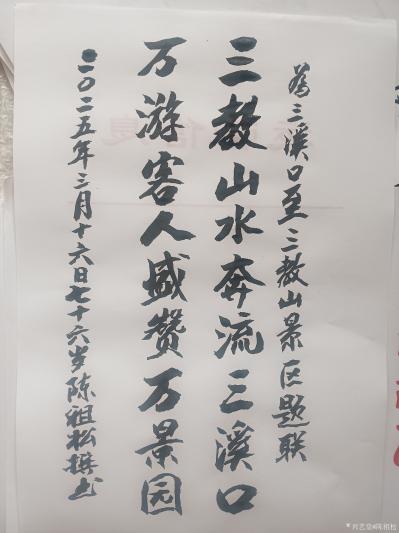 为三溪口至三教山景区题联
三教山水奔流三溪口
万游客人盛赞万景园
二〇二五年三月十六日七十六岁陈祖松撰书